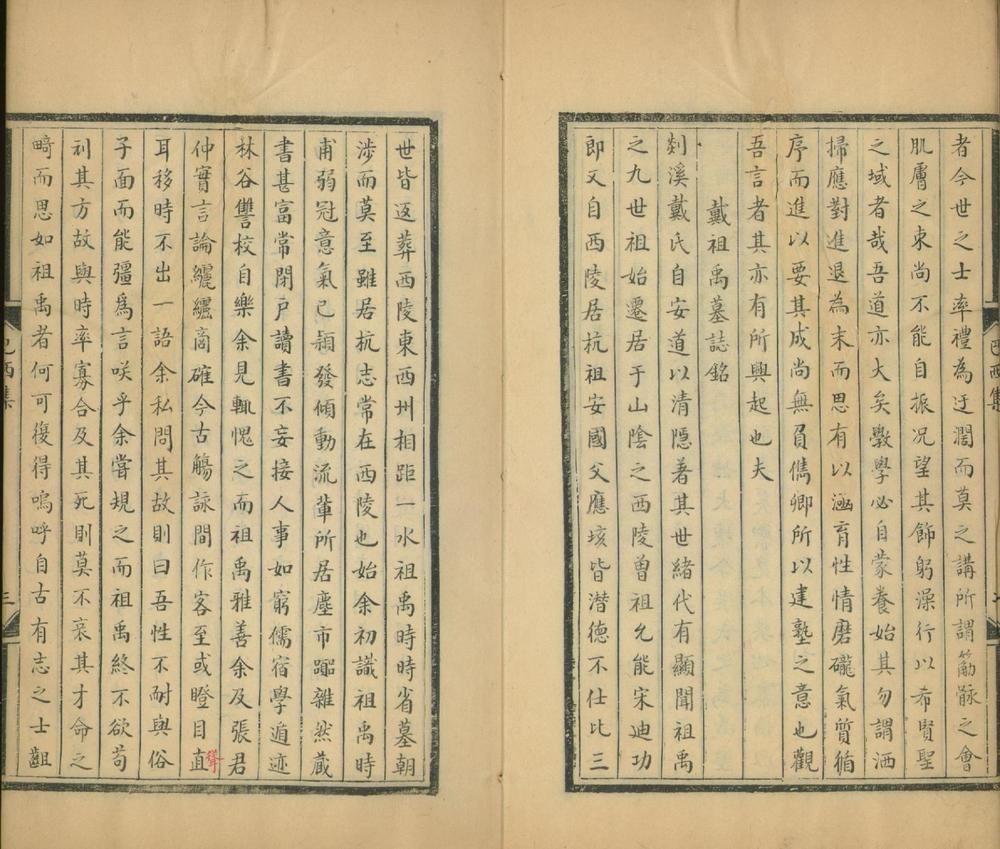 者今世之士率禮為迂濶而莫之講所謂筋骸之會
肌膚之束尚不能自振况望其飾躬澡行以希賢聖
之域者哉吾道亦大矣斆學必自蒙養始其勿謂洒
掃應對進退為末而思有以涵育性情磨礲氣質循
序而進以要其成尚無負儁卿所以建塾之意也觀
吾言者其亦有所興起也夫
戴祖禹墓誌銘
剡溪戴氏自安道以清隱著其世緒代有顯聞祖禹
之九世祖始遷居于山陰之西陵曽祖允能宋迪功
即又自西陵居杭祖安國父應㤥皆潜德不仕比三
世皆返葬西陵東西州相距一水祖禹時時省墓朝
涉而莫至雖居杭志常在西陵也始余初識祖禹時
甫弱冠意氣已穎發傾動流軰所居塵市躢雜然蔵
書甚富常閉户讀書不妄接人事如窮儒宿學遁迹
林谷讐校自樂余見輒愧之而祖禹雅善余及張君
仲實言論纚纚商確今古觴詠間作客至或瞪目直
聳
耳移時不出一語余私問其故則曰吾性不耐與俗
子面而能彊為言咲乎余嘗規之而祖禹終不欲苟
刓其方故與時率寡合及其死則莫不哀其才命之
畸而思如祖禹者何可復得嗚呼自古有志之士齟
巴西集
三
巴西集